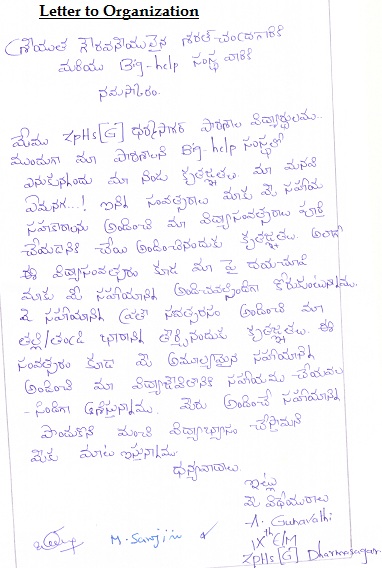 Letter to Organization
శ్రీయుత గౌరవనీయులైన శరత్-చంద్రగారికి
మరియు Big-help సంస్థ వారికి
నమస్కారం.
మేము ZPHS[G] ధర్మసాగర్ పాఠశాల విద్యార్థులము.
ముందుగా మా పాఠశాలని Big-help సంస్థలో
ఎన్నుకున్నందు మా నిండు కృతజ్ఞతలు. మా మనవి
ఏమనగా...! ఇన్ని సంవత్సరాలు మాకు మీ సహాయ
సహకారాలను అందించి మా విద్యాసంవత్సరాలు పూర్తి
చేయడానికి చేయి అందించినందుకు కృతజ్ఞతలు. అలాగే
ఈ విద్యాసంవత్సరం కూడ మా పై దయచూపి
మాకు మీ సహాయాన్ని అందించవల్సిందిగా కోరుకుంటున్నాము.
మీ సహాయాన్ని ప్రతి సంవత్సరం అందించి మా
తల్లి/తండ్రి భారాన్ని తగ్గించినందుకు కృతజ్ఞతలు. ఈ
సంవత్సరం కూడా మీ అమూల్యమైన సహాయాన్ని
అందించి మా విద్యాజీవితానికి సహాయము చేయవల
-సిందిగా ఆశిస్తున్నాము. మీరు అందించే సహాయాన్ని
పొందుకొని మంచి విద్యాభ్యాసం చేస్తామని
మీకు మాట ఇస్తున్నాము.
ధన్యవాదాలు.
ఇట్లు
మీ విధేయురాలు
A. Gunavathi
IXth C/M
ZPHS[G] Dharmasagar
M. Sanjiiv